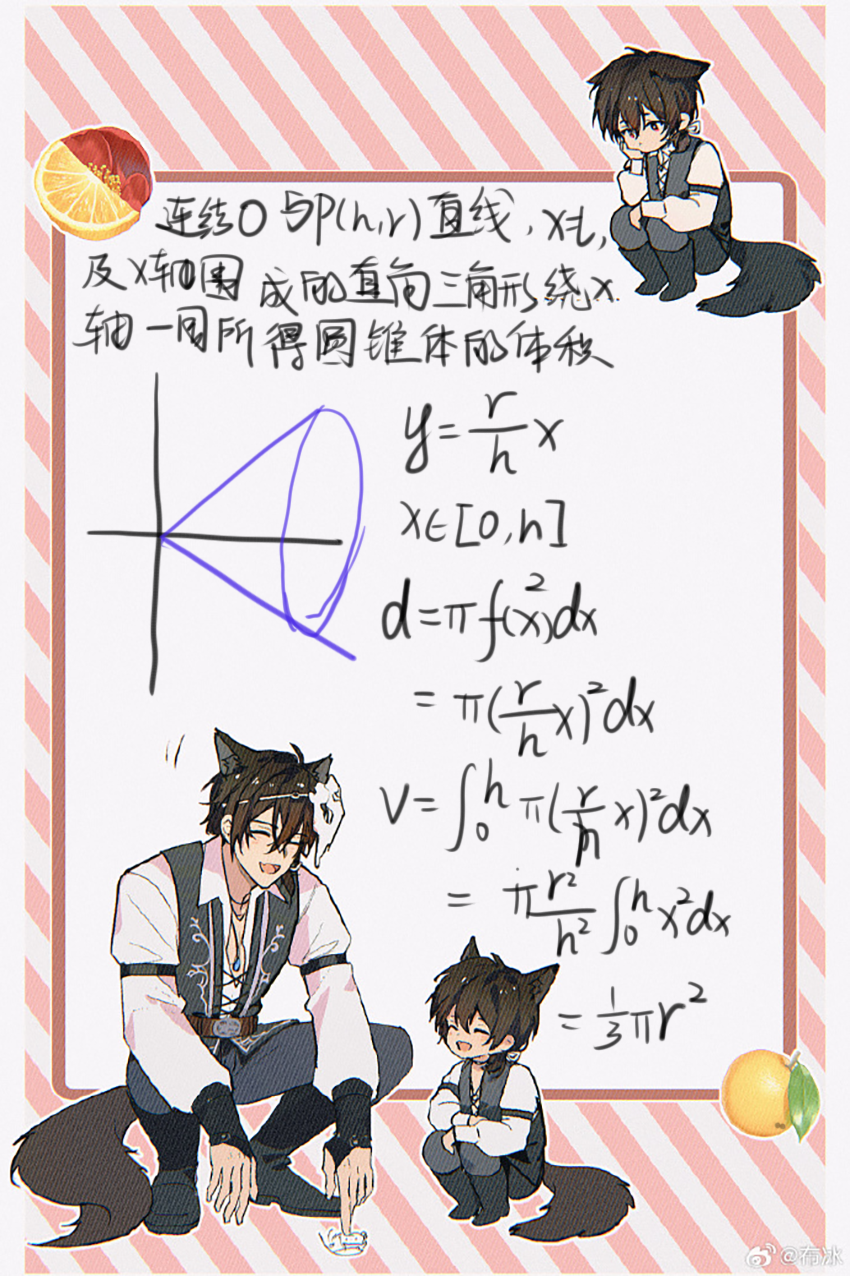 连结0与P(h,r)直线,x=h,
及x轴围成的直角三角形绕x
轴一周所得圆锥体的体积
y=\frac{r}{h}x
x∈[0,h]
d=πf(x)^2dx
=π(\frac{r}{h}x)^2dx
V=∫_0^h π(\frac{r}{h}x)^2dx
=π\frac{r^2}{h^2}∫_0^h x^2dx
=\frac{1}{3}πr^2
@布冰